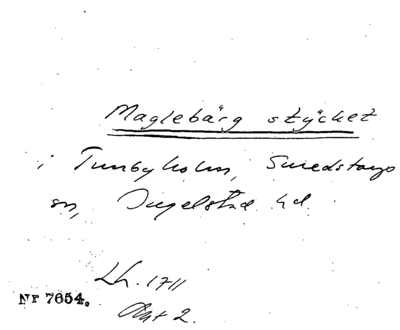 Maglebärg stÿcket
i Tunbyholm, Smedstorps
sn, Ingelstad hd.
Lh. 1711
Akt 2.
Nr 7654.